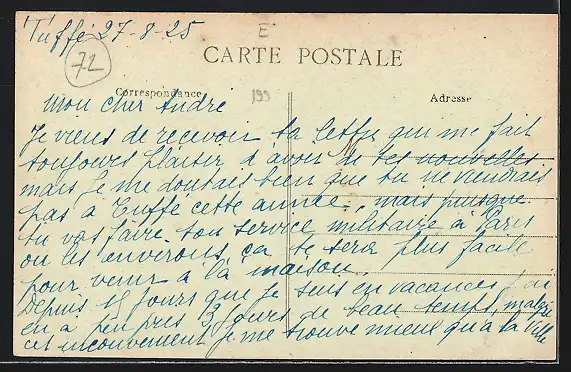 Tuffé 27-8-25
E
72
CARTE POSTALE
Correspondance
199
Adresse
Mon cher André
Je viens de recevoir ta lettre qui me fait
toujours plaisir d'avoir de tes nouvelles
mais je me doutais bien que tu ne viendrais
pas à Tuffé cette année, mais puisque
tu vas faire ton service militaire à Paris
ou les environs, ça te sera plus facile
pour venir à la maison.
Depuis 15 jours que je suis en vacances j'ai
eu à peu près 3 jours de beau temps, malgré
cet inconvénient je me trouve mieux qu'à la Ville